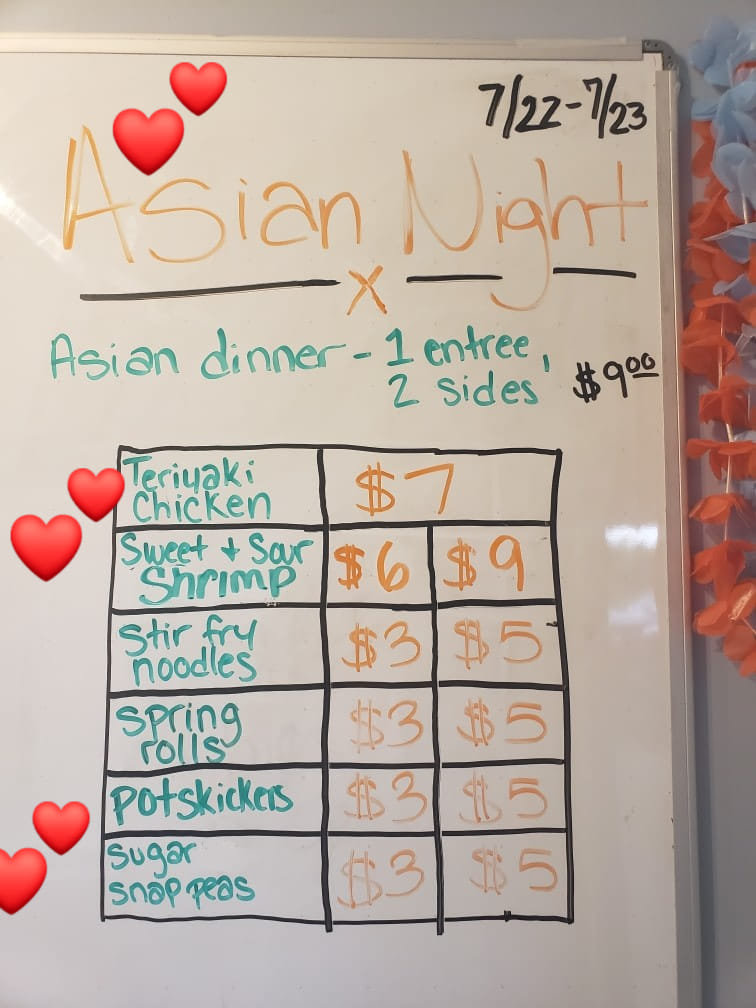 7/22-7/23
Asian Night
x
Asian dinner - 1 entree,
2 sides
$9.00
Teriyaki
Chicken
$7
Sweet + Sour
Shrimp
$6
$9
Stir fry
noodles
$3
$5
Spring
rolls
$3
$5
Potskickers
$3
$5
Sugar
snap peas
$3
$5